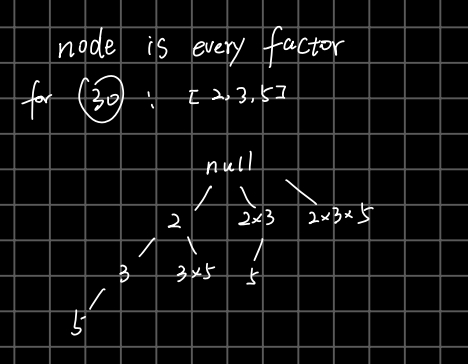 node is every factor
for 30 : [2,3,5]
null
2 2×3 2×3×5
3 3×5 5
5